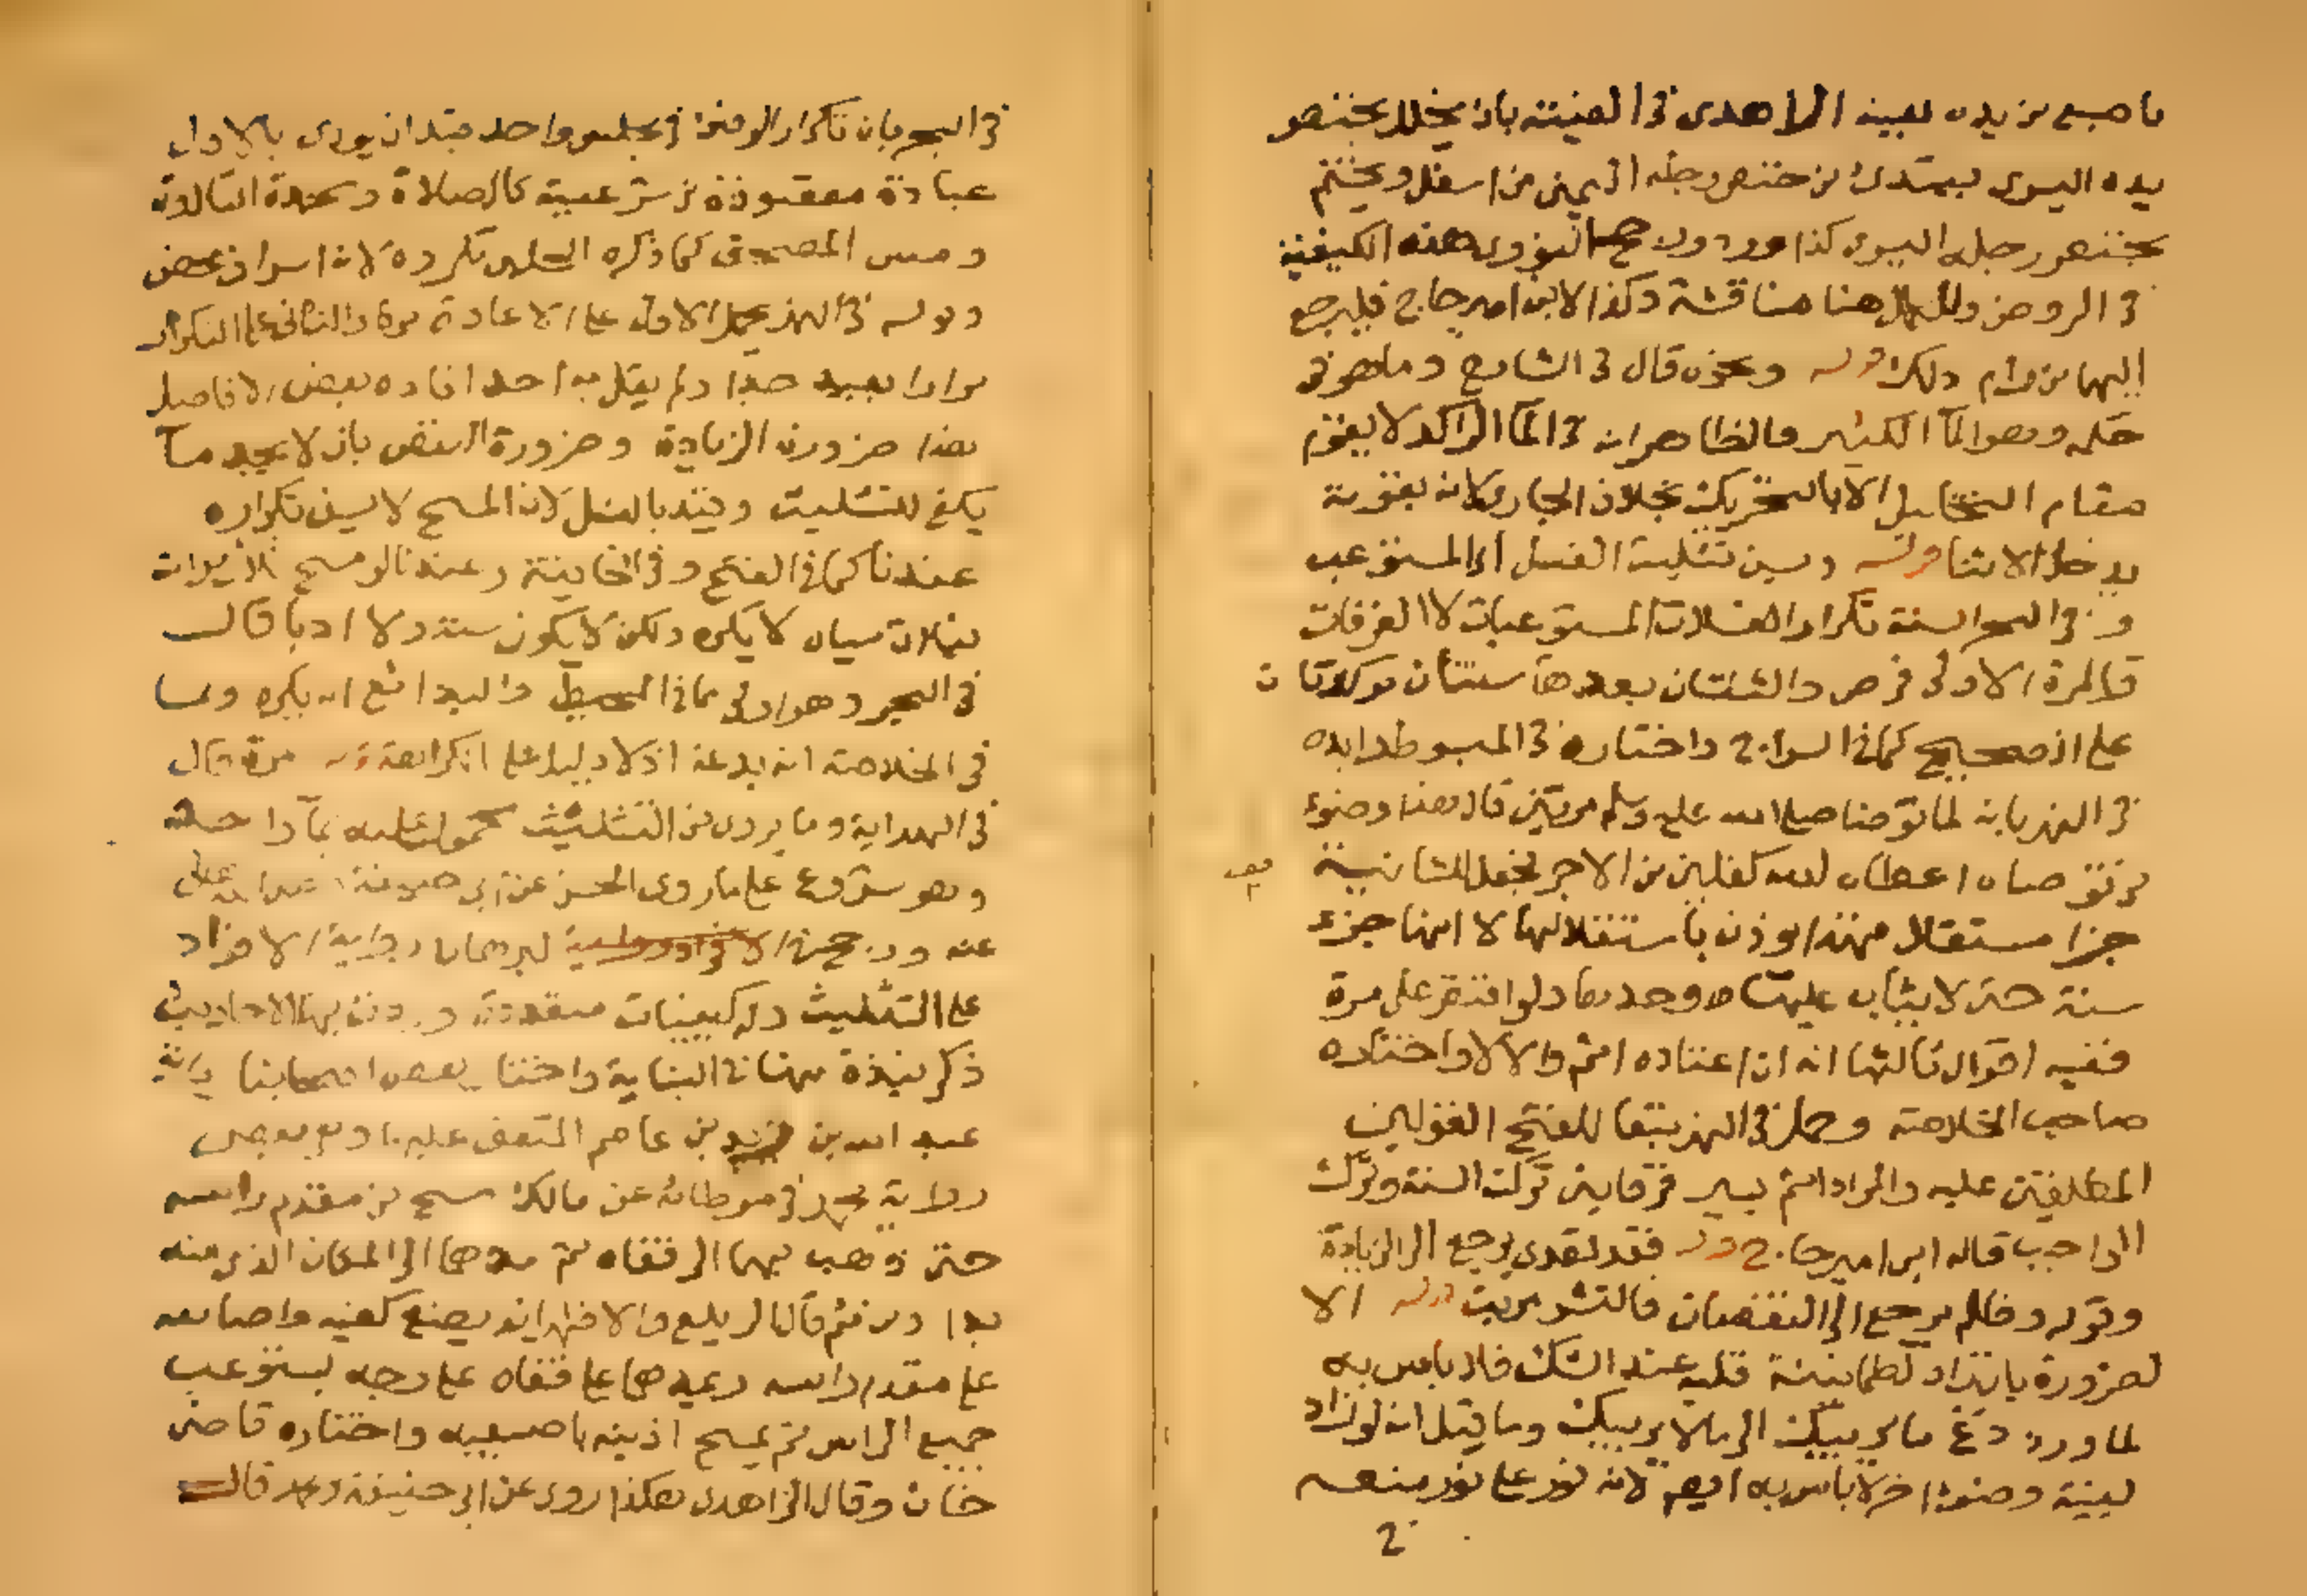 ما صبع من يده لعبينه الزاهدى فى القنية بان يخلل بخنصر
يده اليسرى يبتدئ من خنصر رجله اليمنى من اسفل ويختم
بخنصر رجله اليسرى كذا ورد النووى هذه الكيفية
فى الروضة وللكمال هنا مناقشة وكذا لابن امير حاج فليرجع
اليهما من رام ذلك قوله ونحوه قال فى الشارح وما هو فى
حكمه وهو الماء الكثير فالظاهر انه فى الماء الراكد لا يقوم
مقام التخليل الا بالتحريك بخلاف الجارى لانه بقوته
يدخل الاثنا قوله وسن تثليث الغسل اى المستوعب
وفى البحر السنة تكرار الغسلات المستوعبات لا الغرفات
فالمرة الاولى فرض والثنتان بعدها سنتان موكدتان
على الصحيح كما فى السراج واختاره فى المبسوط وايده
فى النهر بانه لما توضا صلى الله عليه وسلم مرتين قال هذا وضوء
من توضاه اعطاه الله كفلين من الاجر فجعل للثانية
جزا مستقلا فهذا يوذن باستقلالها لا انها جزء
سنة حتى لا يثاب عليها وحدها ولو اقتصر على مرة
ففيه اقوال ثالثها انه ان اعتاده اثم والا لا واختاره
صاحب الخلاصة وحمل فى النهر تبعا للفتح القولين
المطلقين عليه والمراد اثم يسير فرقا بين ترك السنة وترك
الواجب قاله ابن امير حاج قوله فقد تعدى يرجع الى الزيادة
وقوله وظلم يرجع الى النقصان فالنشر مرتب قوله الا
لضرورة بان زاد لطمانينة قلبه عند الشك فلا باس به
لما ورد دع ما يريبك الى ما لا يريبك وما قيل انه لو زاد
لنية وضوء اخر لا باس به ايضا لانه نور على نور منعه
فى البحر بان تكرار الوضوء فى مجلس واحد قبل ان يودى بالاول
عبادة مقصودة من شرعيته كالصلاة وسجدة التلاوة
ومس المصحف كما ذكره الحلبى مكروه لانه اسراف محض
وقوله فى النهر يحمل الاول على الاعادة مرة والثانى على التكرار
مرارا بعيد جدا ولم يقل به احد افاده بعض الافاضل
هذا ضرورة الزيادة وضرورة النقص بان لا يجد ما
يكفى للتثليث وقيد بالغسل لان المسح لا يسن تكراره
عندنا كما فى الفتح وفى الخانية وعندنا لو مسح ثلاث مرات
بثلاث مياه لا يكره ولكن لا يكون سنة ولا ادبا قال
فى البحر وهو اولى مما فى المحيط والبدائع انه يكره وما
فى الخلاصة انه بدعة اذ لا دليل على الكراهة قوله مرة قال
فى الهداية وما يروى من التثليث محمول عليه بماء واحد
وهو مشروع على ما روى الحسن عن ابى حنيفة
عنه ورجحنا البرهان رواية الافراد
على التثليث وله كيفيات متعددة وردت بها الاحاديث
ذكر نبذة منها فى البناية واختار بعض اصحابنا رواية
عبد الله بن زيد بن عاصم المتفق عليها وهو بمعنى
رواية محمد فى موطائه عن مالك مسح من مقدم راسه
حتى ذهب بهما الى قفاه ثم ردهما الى المكان الذى منه
بدا ومن ثم قال الزيلعى والاظهر انه يضع كفيه واصابعه
على مقدم راسه ويمدهما على قفاه على وجه يستوعب
جميع الراس ثم يمسح اذنيه باصبعيه واختاره قاضى
خان وقال الزاهدى هكذا روى عن ابى حنيفة ومحمد قال